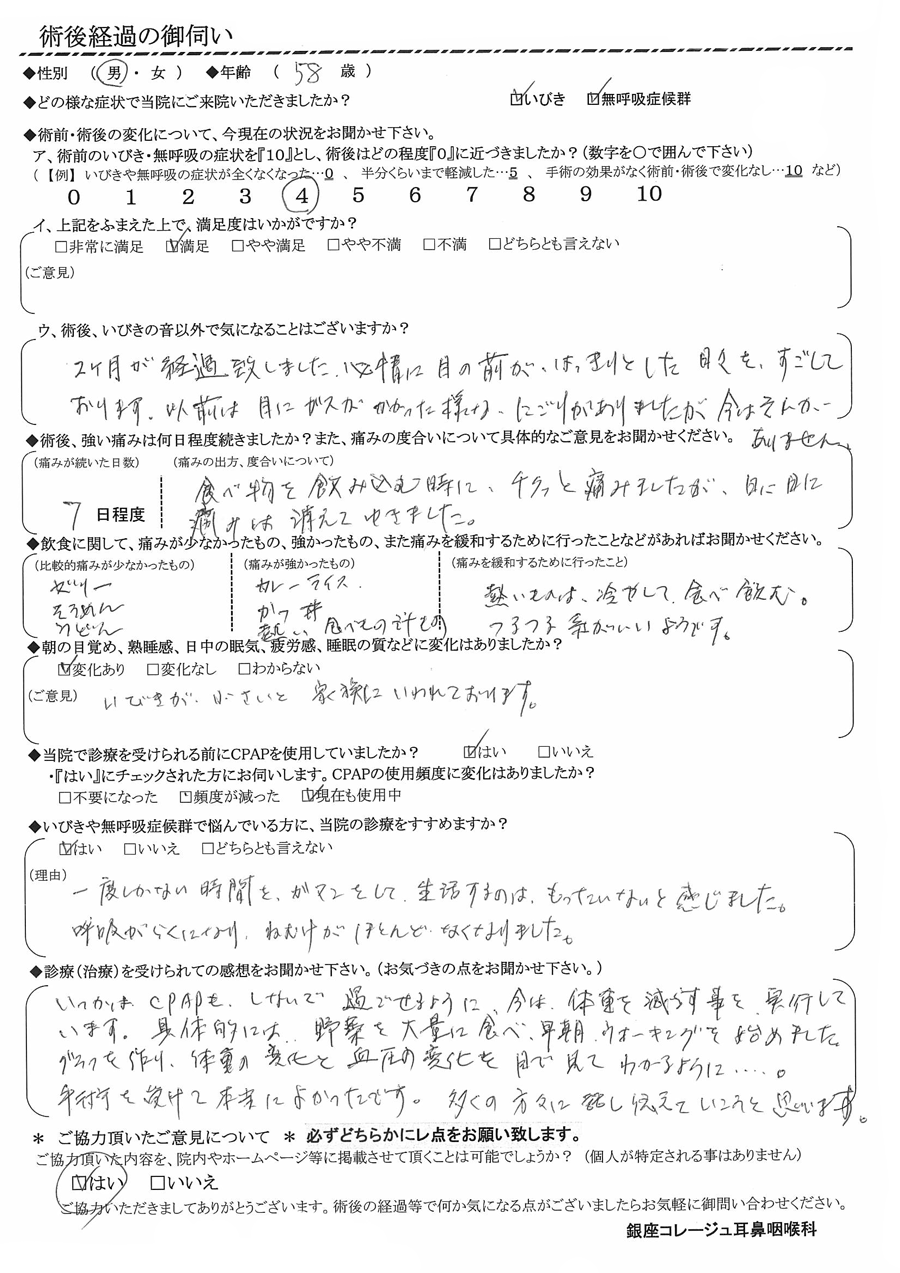 術後経過の御伺い
◆性別 (男・女) ◆年齢 (58 歳)
◆どの様な症状で当院にご来院いただきましたか? ☑いびき ☑無呼吸症候群
◆術前・術後の変化について、今現在の状況をお聞かせ下さい。
ア、術前のいびき・無呼吸の症状を『10』とし、術後はどの程度『0』に近づきましたか?(数字を〇で囲んで下さい)
(【例】いびきや無呼吸の症状が全くなくなった…0 、 半分くらいまで軽減した…5 、 手術の効果がなく術前・術後で変化なし…10 など)
0 1 2 3 4 5 6 7 8 9 10
イ、上記をふまえた上で、満足度はいかがですか?
□非常に満足 ☑満足 □やや満足 □やや不満 □不満 □どちらとも言えない
(ご意見)
ウ、術後、いびきの音以外で気になることはございますか?
2ヶ月が経過致しました。に目の前が、はっきりとした日々を、すごして
おります。以前は目にガスがかかった様な、にごりがありましたが今はそんな
ありません。
◆術後、強い痛みは何日程度続きましたか?また、痛みの度合いについて具体的なご意見をお聞かせください。
(痛みが続いた日数) (痛みの出方、度合いについて)
7 日程度
食べ物を飲み込む時に、チクッと痛みましたが、日に日に
痛みは消えてゆきました。
◆飲食に関して、痛みが少なかったもの、強かったもの、また痛みを緩和するために行ったことなどがあればお聞かせください。
(比較的痛みが少なかったもの) (痛みが強かったもの) (痛みを緩和するために行ったこと)
ゼリー
そうめん
うどん
カレーライス
かつ丼
熱い食べもの
熱いものは、冷やして、食べ飲む。
つるつる系がいいようです。
◆朝の目覚め、熟睡感、日中の眠気、疲労感、睡眠の質などに変化はありましたか?
☑変化あり □変化なし □わからない
(ご意見) いびきが、小さいと家族にいわれております。
◆当院で診療を受けられる前にCPAPを使用していましたか? ☑はい □いいえ
・『はい』にチェックされた方にお伺いします。CPAPの使用頻度に変化はありましたか?
□不要になった □頻度が減った ☑現在も使用中
◆いびきや無呼吸症候群で悩んでいる方に、当院の診療をすすめますか?
☑はい □いいえ □どちらとも言えない
(理由) 一度しかない時間を、ガマンをして、生活するのは、もったいないと感じました。
呼吸がらくになり、ねむけがほとんどなくなりました。
◆診療(治療)を受けられての感想をお聞かせ下さい。(お気づきの点をお聞かせ下さい。)
いつかはCPAPを、しないで過ごせるように、今は、体重を減らす事を実行して
います。具体的には、野菜を大量に食べ、早朝ウォーキングを始めました。
グラフを作り、体重の変化と血圧の変化を目で見てわかるように……。
手術を受けて本当によかったです。多くの方々に話し伝えていこうと思います。
＊ ご協力頂いたご意見について ＊ 必ずどちらかにレ点をお願い致します。
ご協力頂いた内容を、院内やホームページ等に掲載させて頂くことは可能でしょうか? (個人が特定される事はありません)
☑はい □いいえ
ご協力いただきましてありがとうございます。術後の経過等で何か気になる点がございましたらお気軽に御問い合わせください。
銀座コレージュ耳鼻咽喉科